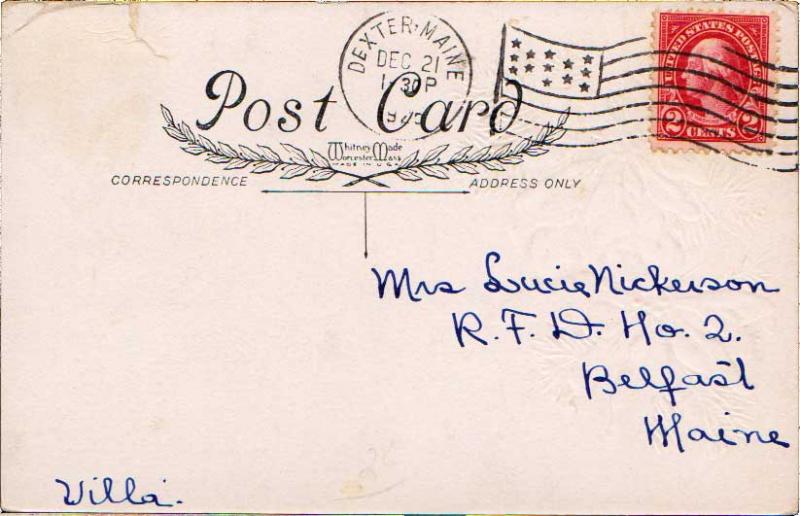 DEXTER MAINE
DEC 21
1 30P
UNITED STATES POSTAGE
2 CENTS 2
Post Card
Whitney Made
Worcester Mass
MADE IN U.S.A.
CORRESPONDENCE
ADDRESS ONLY
Mrs Lucie Nickerson
R. F. D. No. 2.
Belfast
Maine
Villa.